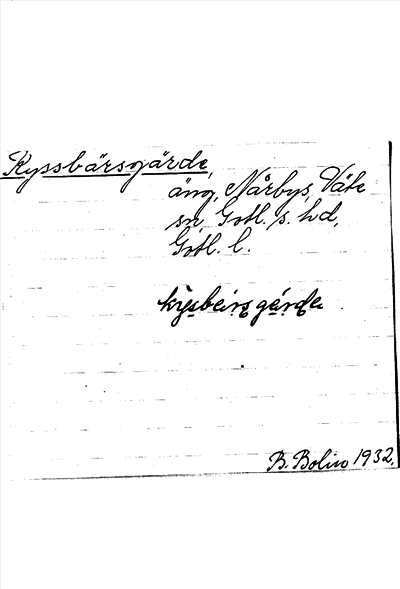 Kyssbärsgärde,
äng, Nårbys, Väte
sn, Gotl. s. hd,
Gotl. l.
kysbeirsgärda
B. Bolin 1932.